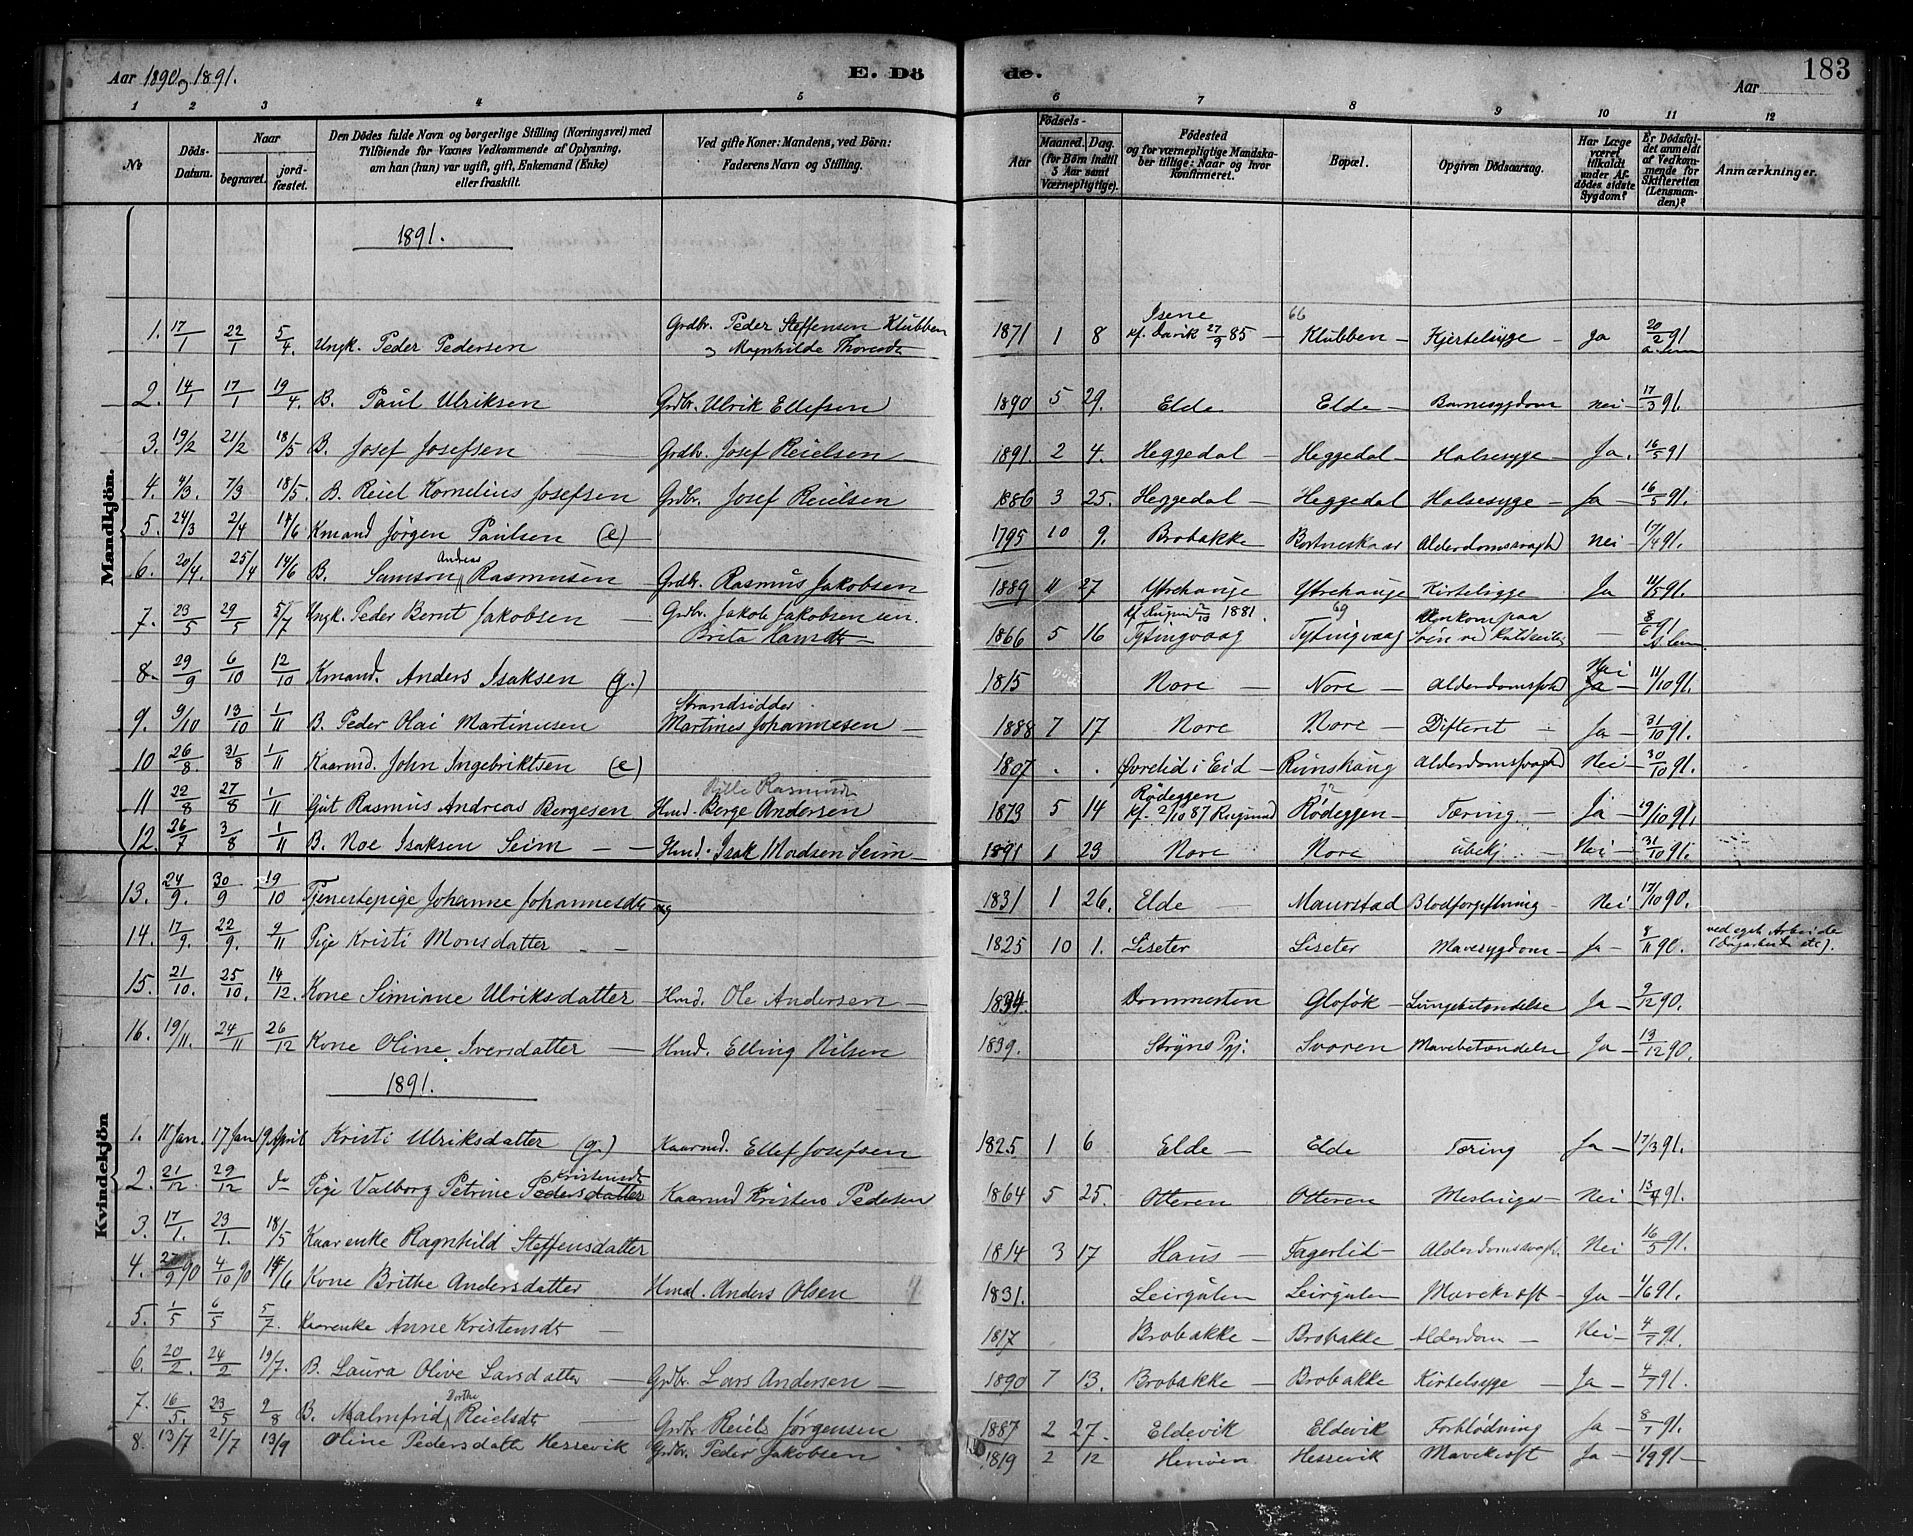 Aar 1890 og 1891.
E. Dö
de.
Aar
183
1 2 3 4 5 6 7 8 9 10 11 12
No
Döds-Datum.
Naar
begravet.
jordfæstet.
Den Dödes fulde Navn og borgerlige Stilling (Næringsvei) med
Tilföiende for Voxnes Vedkommende af Oplysning,
om han (hun) var ugift, gift, Enkemand (Enke)
eller fraskilt.
Ved gifte Koner: Mandens, ved Börn:
Faderens Navn og Stilling.
Födsels-
Aar
Maaned. Dag.
(for Börn indtil
5 Aar samt
Værnepligtige).
Födested
og for værnepligtige Mandska-
ber tillige: Naar og hvor
Konfirmeret.
Bopæl.
Opgiven Dödsaarsag.
Har Læge
været
tilkaldt
under Af-
dödes sidste
Sygdom?
Er Dödsfal-
det anmeldt
af Vedkom-
mende for
Skifteretten
(Lensman-
den)?
Anmærkninger.
Mandkjön.
1891.
1. 17/1 22/1 5/4. Ungk. Peder Pedersen Grdbr. Peder Steffensen Klubben og Magnhilde 1871 1 8 Isene kf. Davik 27/9 85 — 66 Klubben — Kjertelsyge — Ja 20/2 91
2. 14/1 17/1 19/4. B. Paul Ulriksen Grdbr. Ulrik Ellefsen 1890 5 29. Elde Elde — Barnesygdom Nei — 17/3 91.
3. 19/2 21/2 18/5 B. Josef Josefsen Grdbr. Josef Reielsen 1891. 2 4. Heggedal — Heggedal — Halsesyge — Ja. 16/5 91
4. 4/3. 7/3 18/5 B. Reiel Kornelius Josefsen Grdbr. Josef Reielsen 1886 3 25. Heggedal — Heggedal Halsesyge — Ja — 16/5 91.
5. 24/3 2/4 14/6 Kmand Jørgen Paulsen (e) — 1795 10 9. Brobakke Bortneskaar Nei — 17/4 91.
6. 20/4. 25/4 14/6 B. Samson Andreas Rasmusen Grdbr. Rasmus Jakobsen 1889 11 27 Ytrehauge Ytrehauge Kirtelsyge Ja 11/5 91.
7. 23/5 29/5 5/7 Ungk. Peder Bernt Jakobsen — Grdbr. Jakob Jakobsen 1866 5 16 1881. Tytingvaag 69 Tytingvaag Omkom paa Söen — 8/6 91
8. 29/9 6/10 12/10 Kmand. Anders Isaksen (g.) 1815 Nore — Nore — Nei Ja — 11/10 91.
9. 9/10 13/10 1/11 B. Peder Olai Martinusen Strandsidder Martines Johannesen — 1888 7 17 Nore Nore — Difterit — Ja — 31/10 91.
10 26/8. 31/8 1/11 Kaarmd. John Ingebriktsen (e) 1807 . . Øvrelid i Eid — Rimshaug Nei — 30/10 91.
11 22/8 27/8 1/11 Gut Rasmus Andreas Bergesen Hmd. Berge Andersen 1873 5 14 Rødeggen Kf. 2/10 87 Rugsund 72 Rødeggen — Tæring — Ja — 19/10 91.
12. 26/7 3/8 1/11 B. Noe Isaksen Seim — — Hmd. Isak Madsen Seim — 1891 1 23 Nore Nore ubekj. — Nei — 31/10 91.
Kvindekjön
13. 24/9. 30/9 19/10 Tjenestepige Johanne Johannesdtr ug 1831 1 26. Elde — Maurstad Blodforgiftning — Nei — 17/10 90.
14. 17/9. 22/9. 9/11 Pige Kristi Monsdatter — — 1825 10 1. Liseter Liseter Mavesygdom — Ja — 8/11 90. ved eget Arbeide (Dagarbeide etc).
15. 21/10. 25/10. 14/12. Kone Simiane Ulriksdatter — Hmd. Ole Andersen — 1834. Dommesten Gloføk — Lungebetændelse Ja — 9/12 90.
16. 19/11. 24/11 26/12 Kone Oline Iversdatter — Hmd. Elling Nilsen 1839. Stryns Pgj. Svoren Mavebetændelse Ja — 13/12 90.
1891.
1. 11 Jan. 17 Jan 19 April Kristi Ulriksdatter (g.) Kaarmd. Ellef Josefsen 1825 1 6 Elde — Elde Tæring Ja — 17/3 91.
2. 21/12. 29/12 do Pige Valborg Petrine Pedersdatter Kristensdtr Kaarmd Kristens Pedersen 1864 5 25. Otteren Otteren Meslinger — Nei — 13/4 91.
3. 17/1. 23/1. 18/5 Kaarenke Ragnhild Steffensdatter 1814 3 17 Haus — Fagerlid — Nei — 16/5 91.
4. 27/9 90 4/10 90 14/6 Kone Brithe Andersdatter Hmd. Anders Olsen 1831. Leirgulen — Leirgulen Mavekræft — Ja — 1/6 91.
5. 1/5 6/5 5/7. Kaarenke Anne Kristensdtr — 1817 Brobakke — Brobakke Alderdom — Nei — 4/7 91.
6. 20/2. 24/2 19/7. B. Laura Olive Larsdatter — Grdbr. Lars Andersen — 1890 7 13. Brobakke — Brobakke Kirtelsyge — Ja — 4/7 91.
7. 16/5. 23/5 2/8 B. Malmfrid Dorthe Reielsdtr — Grdbr Reiel Jørgensen 1887 2 27. Eldevik Eldevik Forblödning Ja — 8/7 91.
8. 13/7 21/7 13/9 Oline Pedersdatter Hessevik Grdbr. Peder Jakobsen 1819 2 12 Hessevik Mavekræft Ja — 1/9 91 —